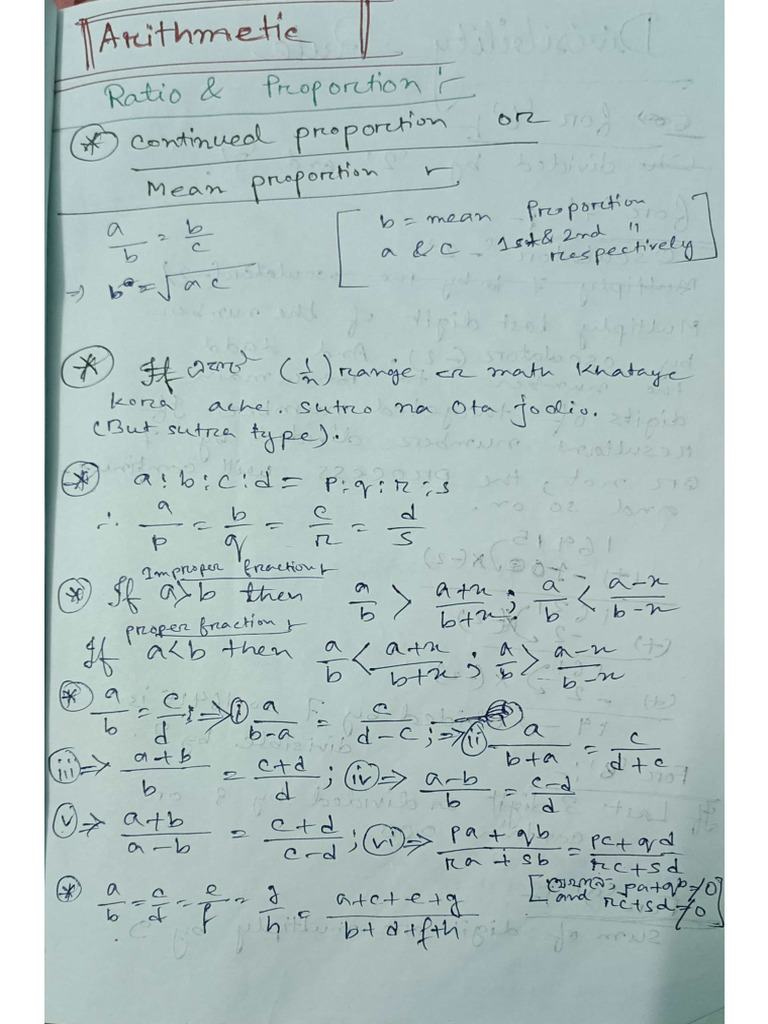 Arithmetic
Ratio & Proportion :-
* Continued proportion or
Mean proportion :-
a/b = b/c
[b = mean Proportion
a & c - 1st & 2nd " respectively]
=> b = √ac
* If (1/n) range er math khataye
kora ache. sutro na Ota jodio.
(But sutra type).
* a : b : c : d = p : q : r : s
∴ a/p = b/q = c/r = d/s
Improper fraction
* If a>b then a/b > a+x/b+x ; a/b < a-x/b-x
proper fraction
If a<b then a/b < a+x/b+x ; a/b > a-x/b-x
* a/b = c/d ; => i) a/b-a = c/d-c ; => ii) a/b+a = c/d+c
iii) => a+b/b = c+d/d ; iv) => a-b/b = c-d/d
v) => a+b/a-b = c+d/c-d ; vi) => pa+qb/ra+sb = pc+qd/rc+sd
[pa+qb≠0
and rc+sd≠0]
* a/b = c/d = e/f = g/h = a+c+e+g/b+d+f+h